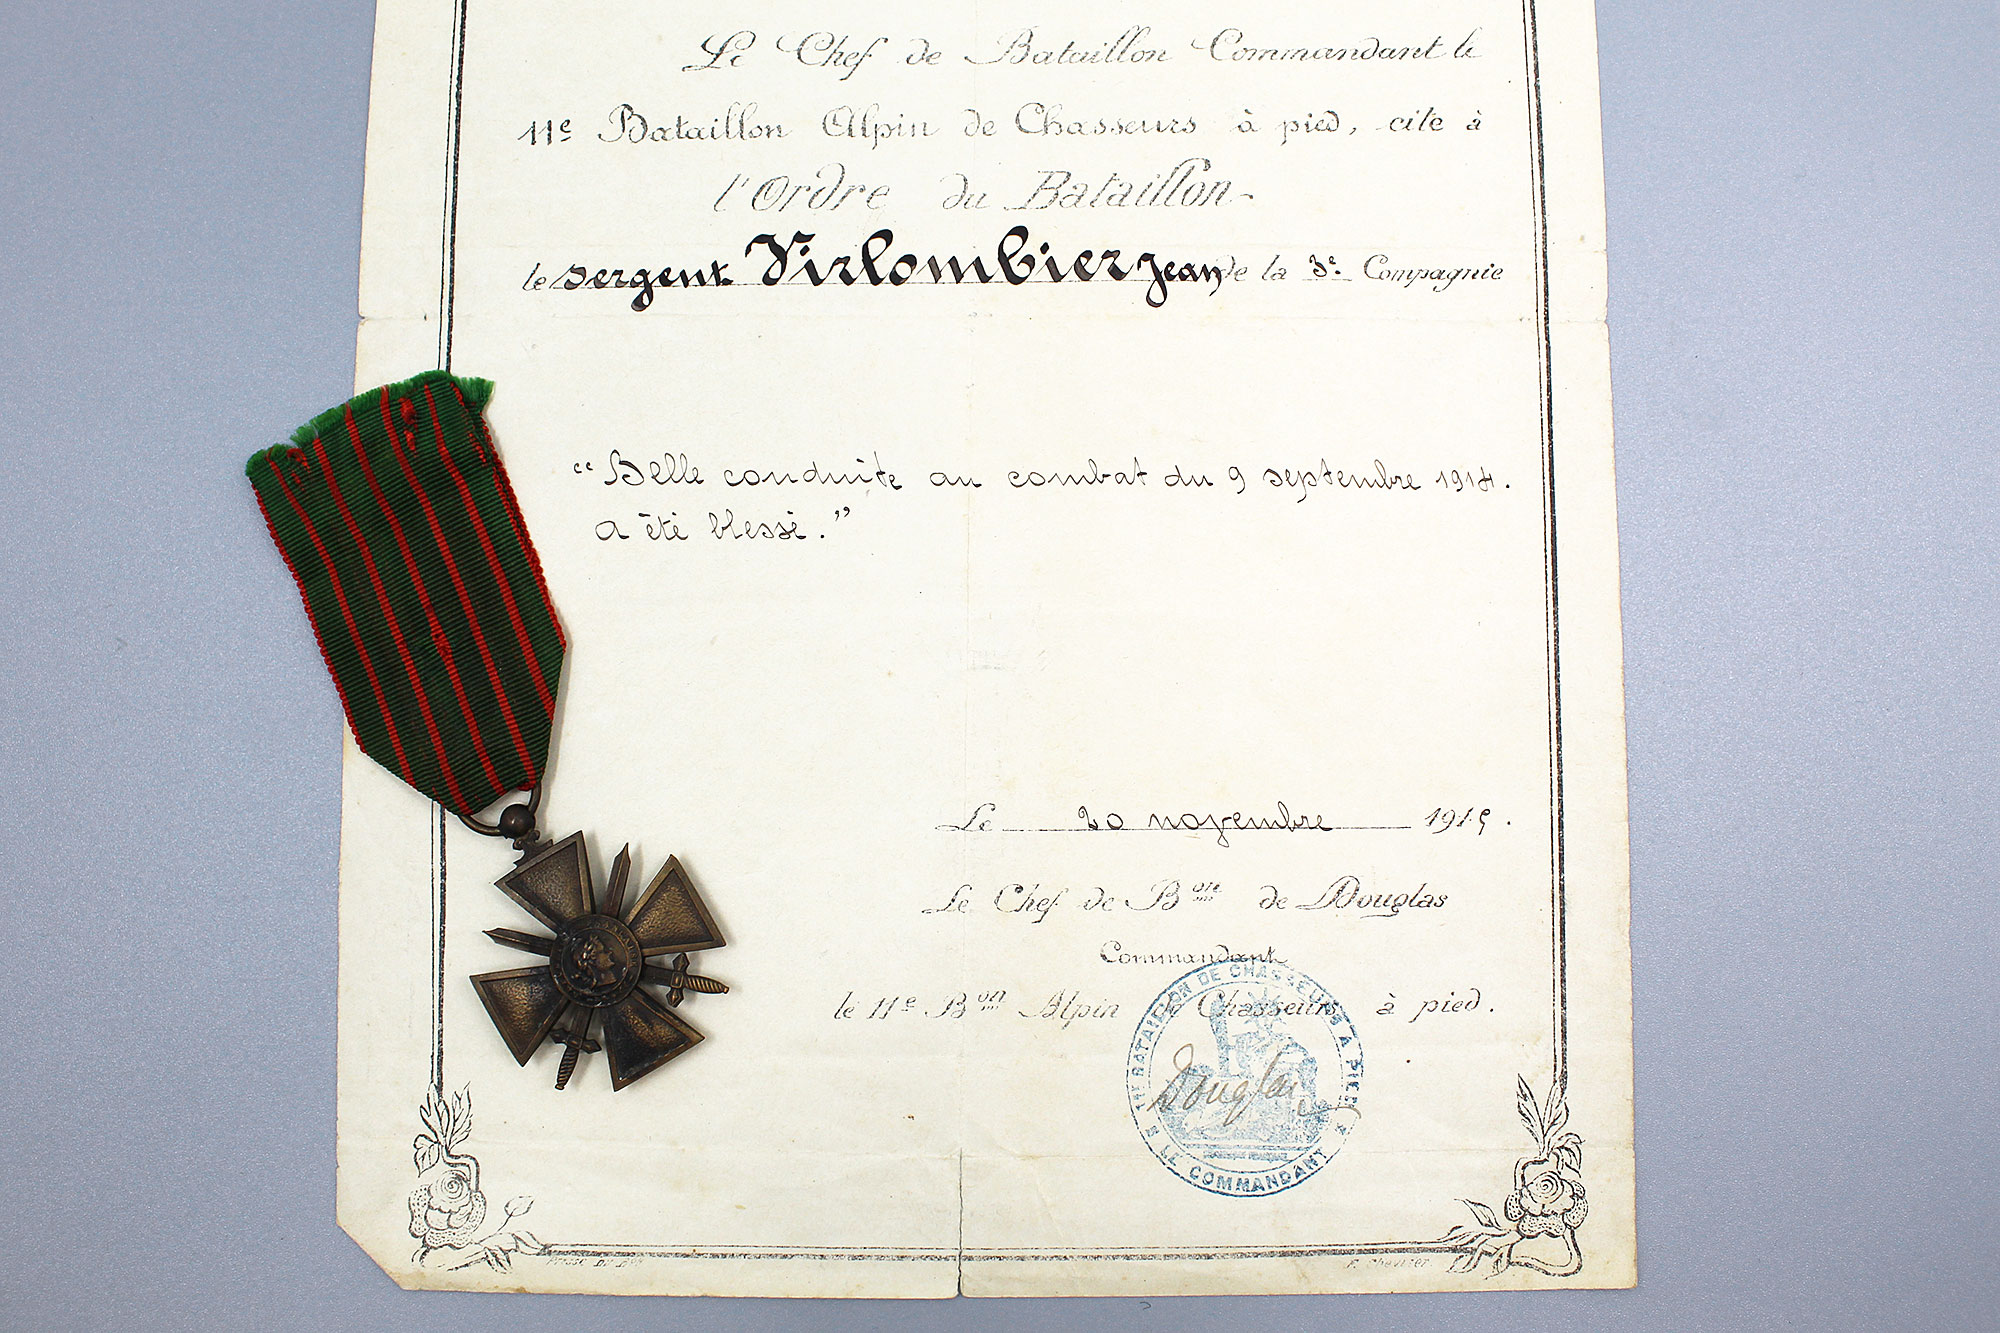 Le Chef de Bataillon Commandant le
11e Bataillon Alpin de Chasseurs à pied, cite à
l'Ordre du Bataillon
le sergent Virlombier Jean de la 3e Compagnie
"Belle conduite au combat du 9 septembre 1914.
a été blessé."
Le 20 novembre 1915.
Le Chef de Bon de Douglas
Commandant
le 11e Bon Alpin de Chasseurs à pied.
11e BATAILLON DE CHASSEURS A PIED
Douglas
LE COMMANDANT